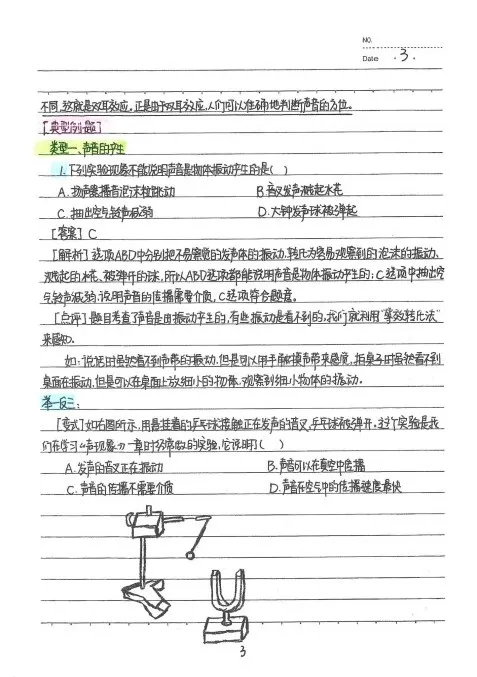 NO.
Date · 3 ·
不同,这就是双耳效应。正是由于双耳效应,人们可以准确地判断声音的方位。
[典型例题]
类型一、声音的产生
1.下列实验现象不能说明声音是物体振动产生的是( )
A.扬声器播音泡沫粒跳动 B.音叉发声溅起水花
C.抽出空气铃声减弱 D.大钟发声球被弹起
[答案] C
[解析] 选项ABD中分别把不易察觉的发声体的振动,转化为容易观察到的泡沫的振动、
溅起的水花、被弹开的球,所以ABD选项都能说明声音是物体振动产生的;C选项中抽出空
气铃声减弱,说明声音的传播需要介质,C选项符合题意。
[点评] 题目考查了声音是由振动产生的,有些振动是看不到的,我们就利用“等效转化法”
来感知。
如:说话时虽然看不到声带的振动,但是可以用手触摸声带来感觉,拍桌子时虽然看不到
桌面在振动,但是可以在桌面上放细小的物体,观察到细小物体的振动。
举一反三:
[变式] 如右图所示,用悬挂着的乒乓球接触正在发声的音叉,乒乓球被弹开。这个实验是我
们在学习《声现象》一章时经常做的实验,它说明了( )
A.发声的音叉正在振动 B.声音可以在真空中传播
C.声音的传播不需要介质 D.声音在空气中的传播速度最快
3